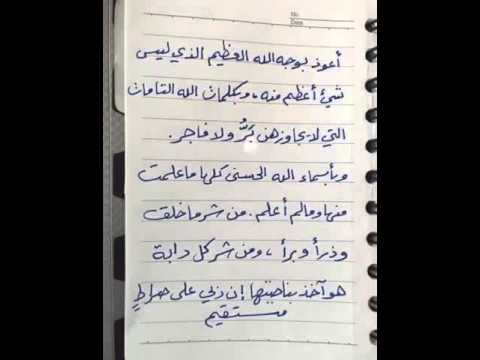 No.
Date
أعوذ بوجه الله العظيم الذي ليس
شيئ أعظم منه، وبكلمات الله التامات
التي لا يجاوزهن بَرٌّ ولا فاجر.
وبأسماء الله الحسنى كلها ما علمت
منها وما لم أعلم. من شر ما خلق
وذرأ وبرأ، ومن شر كل دابة
هو آخذ بناصيتها إن ربي على صراطٍ
مستقيم